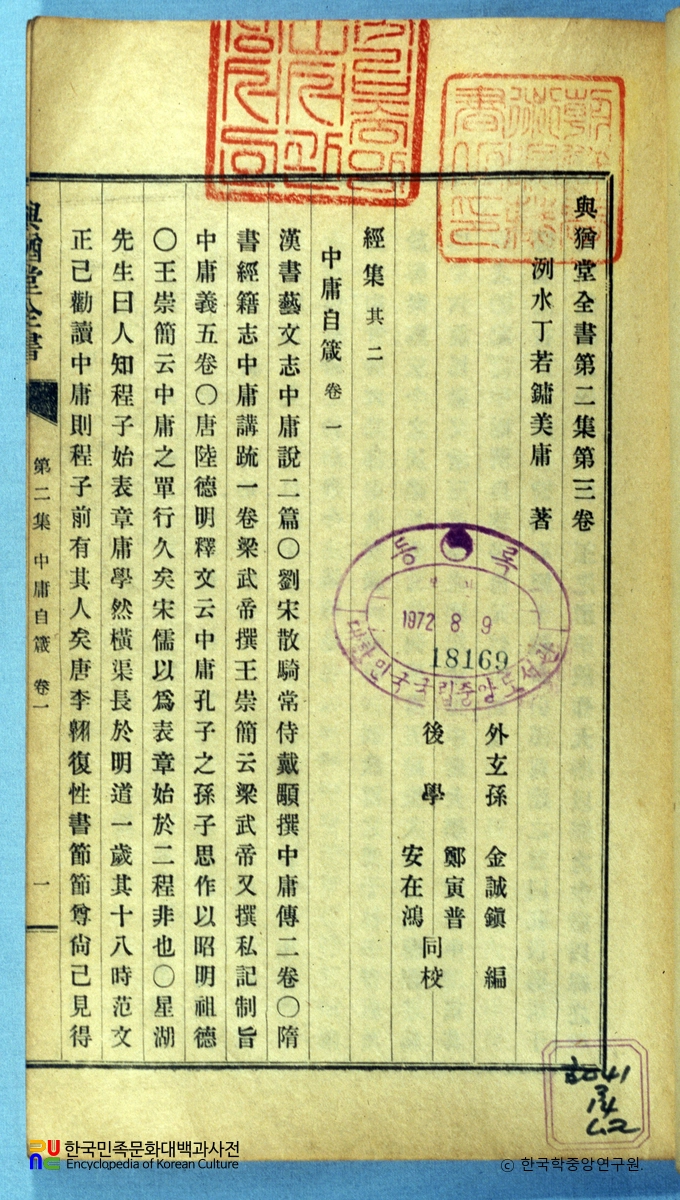 與猶堂全書第二集第三卷
洌水丁若鏞美庸 著
外玄孫 金誠鎭 編
後學 鄭寅普
安在鴻 同校
經集 其二
中庸自箴 卷一
漢書藝文志中庸說二篇〇劉宋散騎常侍戴顒撰中庸傳二卷〇隋
書經籍志中庸講疏一卷梁武帝撰王崇簡云梁武帝又撰私記制旨
中庸義五卷〇唐陸德明釋文云中庸孔子之孫子思作以昭明祖德
〇王崇簡云中庸之單行久矣宋儒以爲表章始於二程非也〇星湖
先生曰人知程子始表章庸學然橫渠長於明道一歲其十八時范文
正已勸讀中庸則程子前有其人矣唐李翺復性書節節尊尙已見得
與猶堂全書
第二集 中庸自箴 卷一
一
등록
1972 8 9
18169
대한민국국립중앙도서관
한국민족문화대백과사전
Encyclopedia of Korean Culture
© 한국학중앙연구원